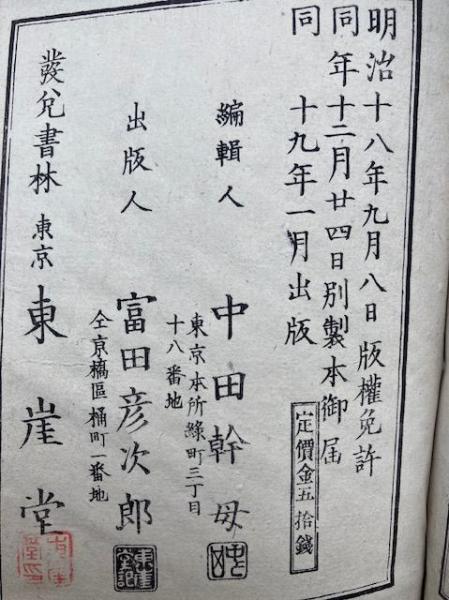 明治十八年九月八日版權免許
同年十二月廿四日別製本御届
同十九年一月出版
定價金五拾錢
編輯人
中田幹母
東京本所緑町三丁目
十八番地
出版人
富田彦次郎
仝京橋區桶町一番地
發兌書林
東京
東崖堂